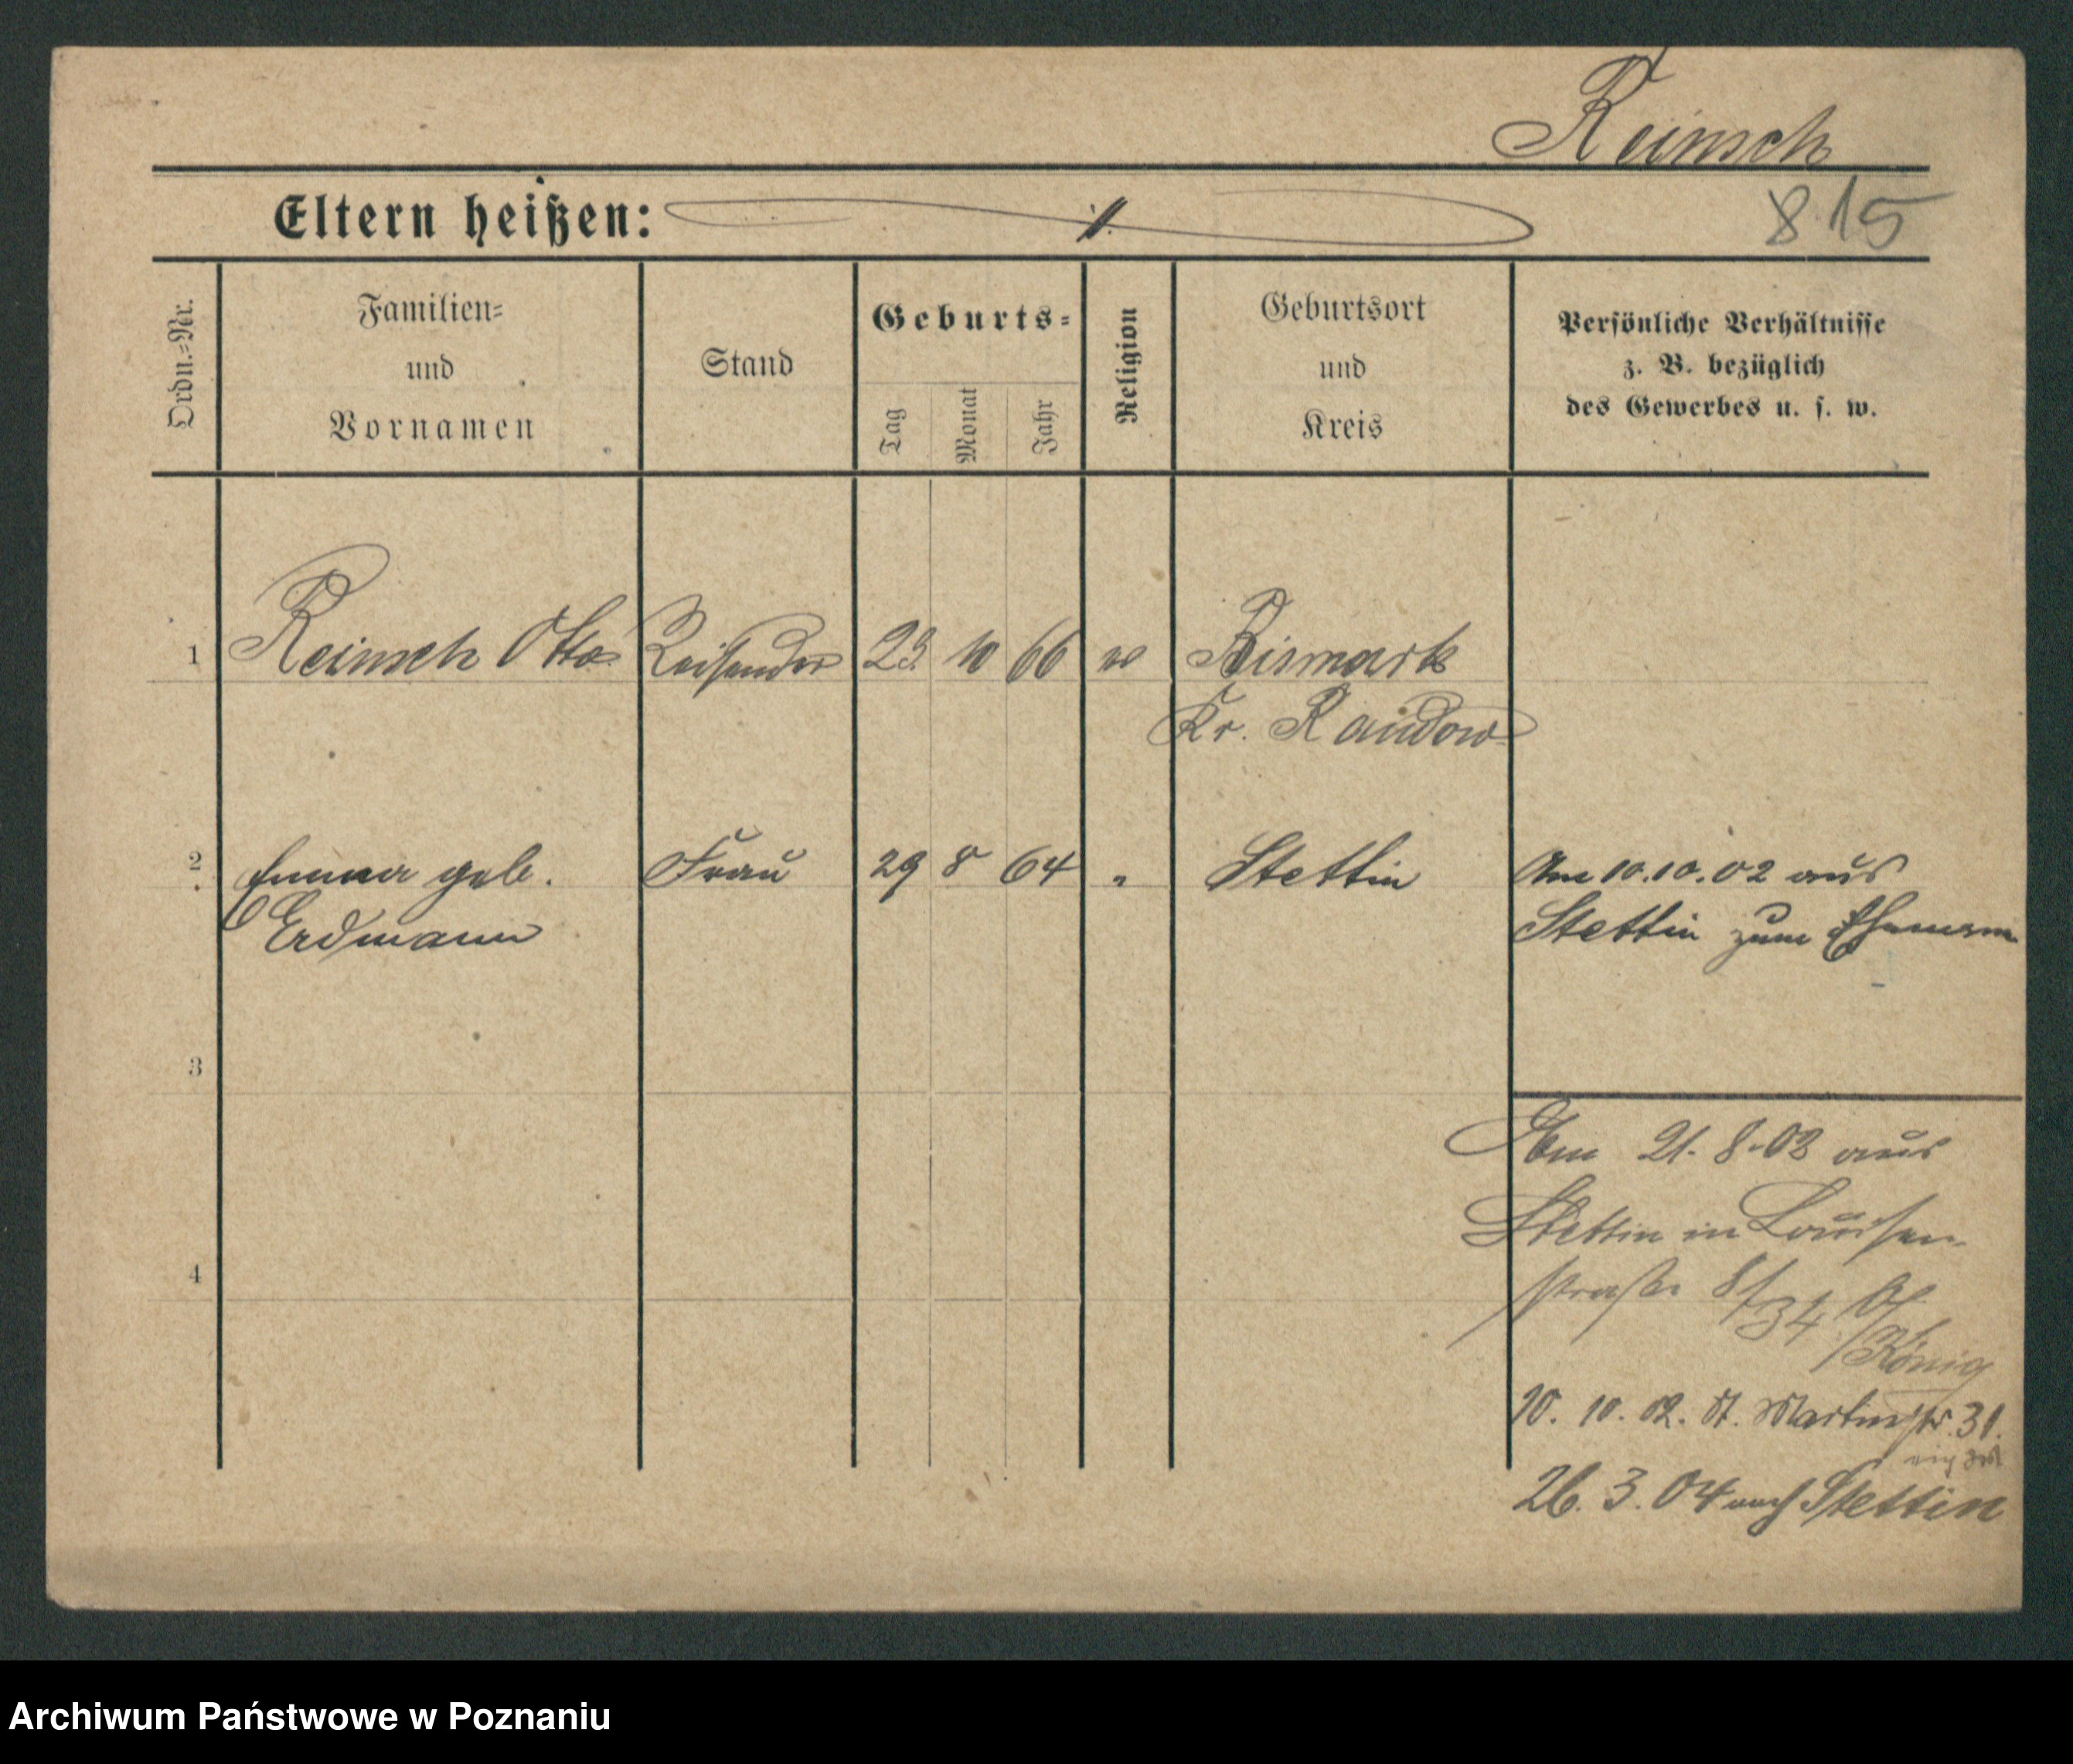 Reinsch
Eltern heißen:
815
Ordn.=Nr.
Familien=
und
Vornamen
Stand
Geburts=
Tag
Monat
Jahr
Religion
Geburtsort
und
Kreis
Persönliche Verhältnisse
z. B. bezüglich
des Gewerbes u. s. w.
1 Reinsch Otto Reisender 23. 10 66 Bismark
Kr. Randow
2 Emma geb. Frau 29 8 64 " Stettin Am 10.10.02 aus
Erdmann Stettin zum Ehemann
3
Am 21.8.02 aus
Stettin in Louisen-
straße 8/34
König
10. 10. 02. St. Martinstr. 31.
26. 3. 04 nach Stettin
4
Archiwum Państwowe w Poznaniu